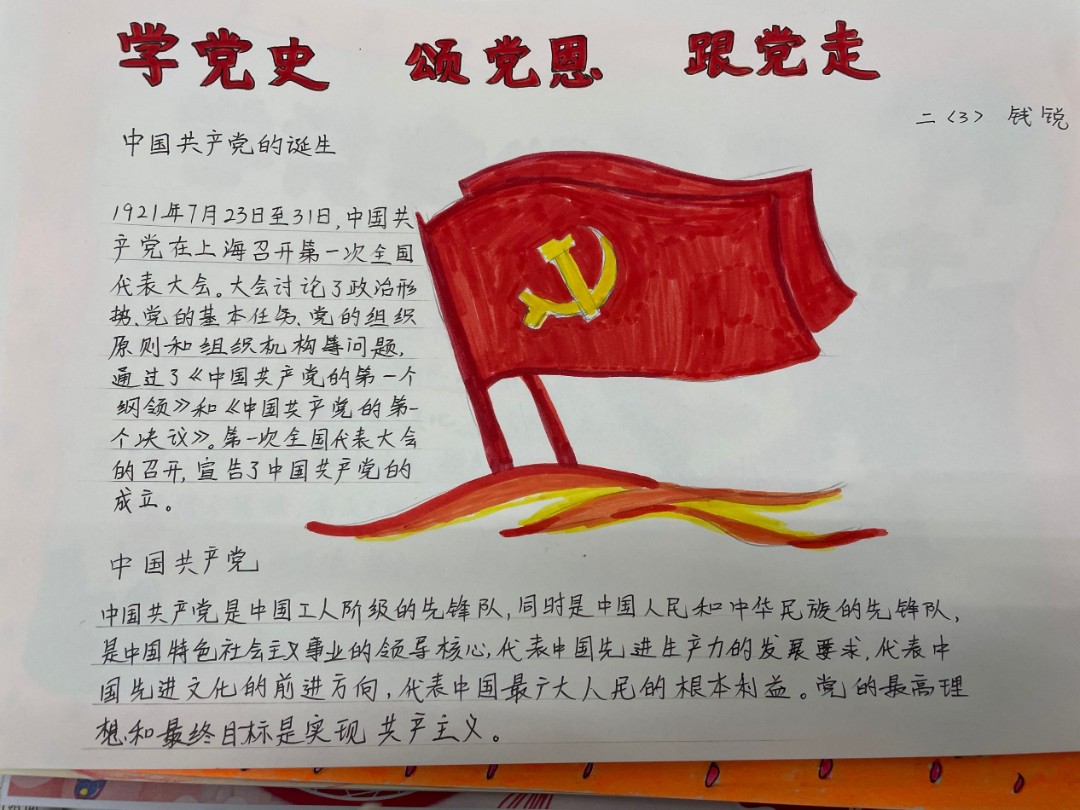 学党史 颂党恩 跟党走
二（3） 钱锐
中国共产党的诞生
1921年7月23日至31日，中国共
产党在上海召开第一次全国
代表大会。大会讨论了政治形
势、党的基本任务、党的组织
原则和组织机构等问题，
通过了《中国共产党的第一个
纲领》和《中国共产党的第一
个决议》。第一次全国代表大会
的召开，宣告了中国共产党的
成立。
中国共产党
中国共产党是中国工人阶级的先锋队，同时是中国人民和中华民族的先锋队，
是中国特色社会主义事业的领导核心，代表中国先进生产力的发展要求，代表中
国先进文化的前进方向，代表中国最广大人民的根本利益。党的最高理
想和最终目标是实现共产主义。